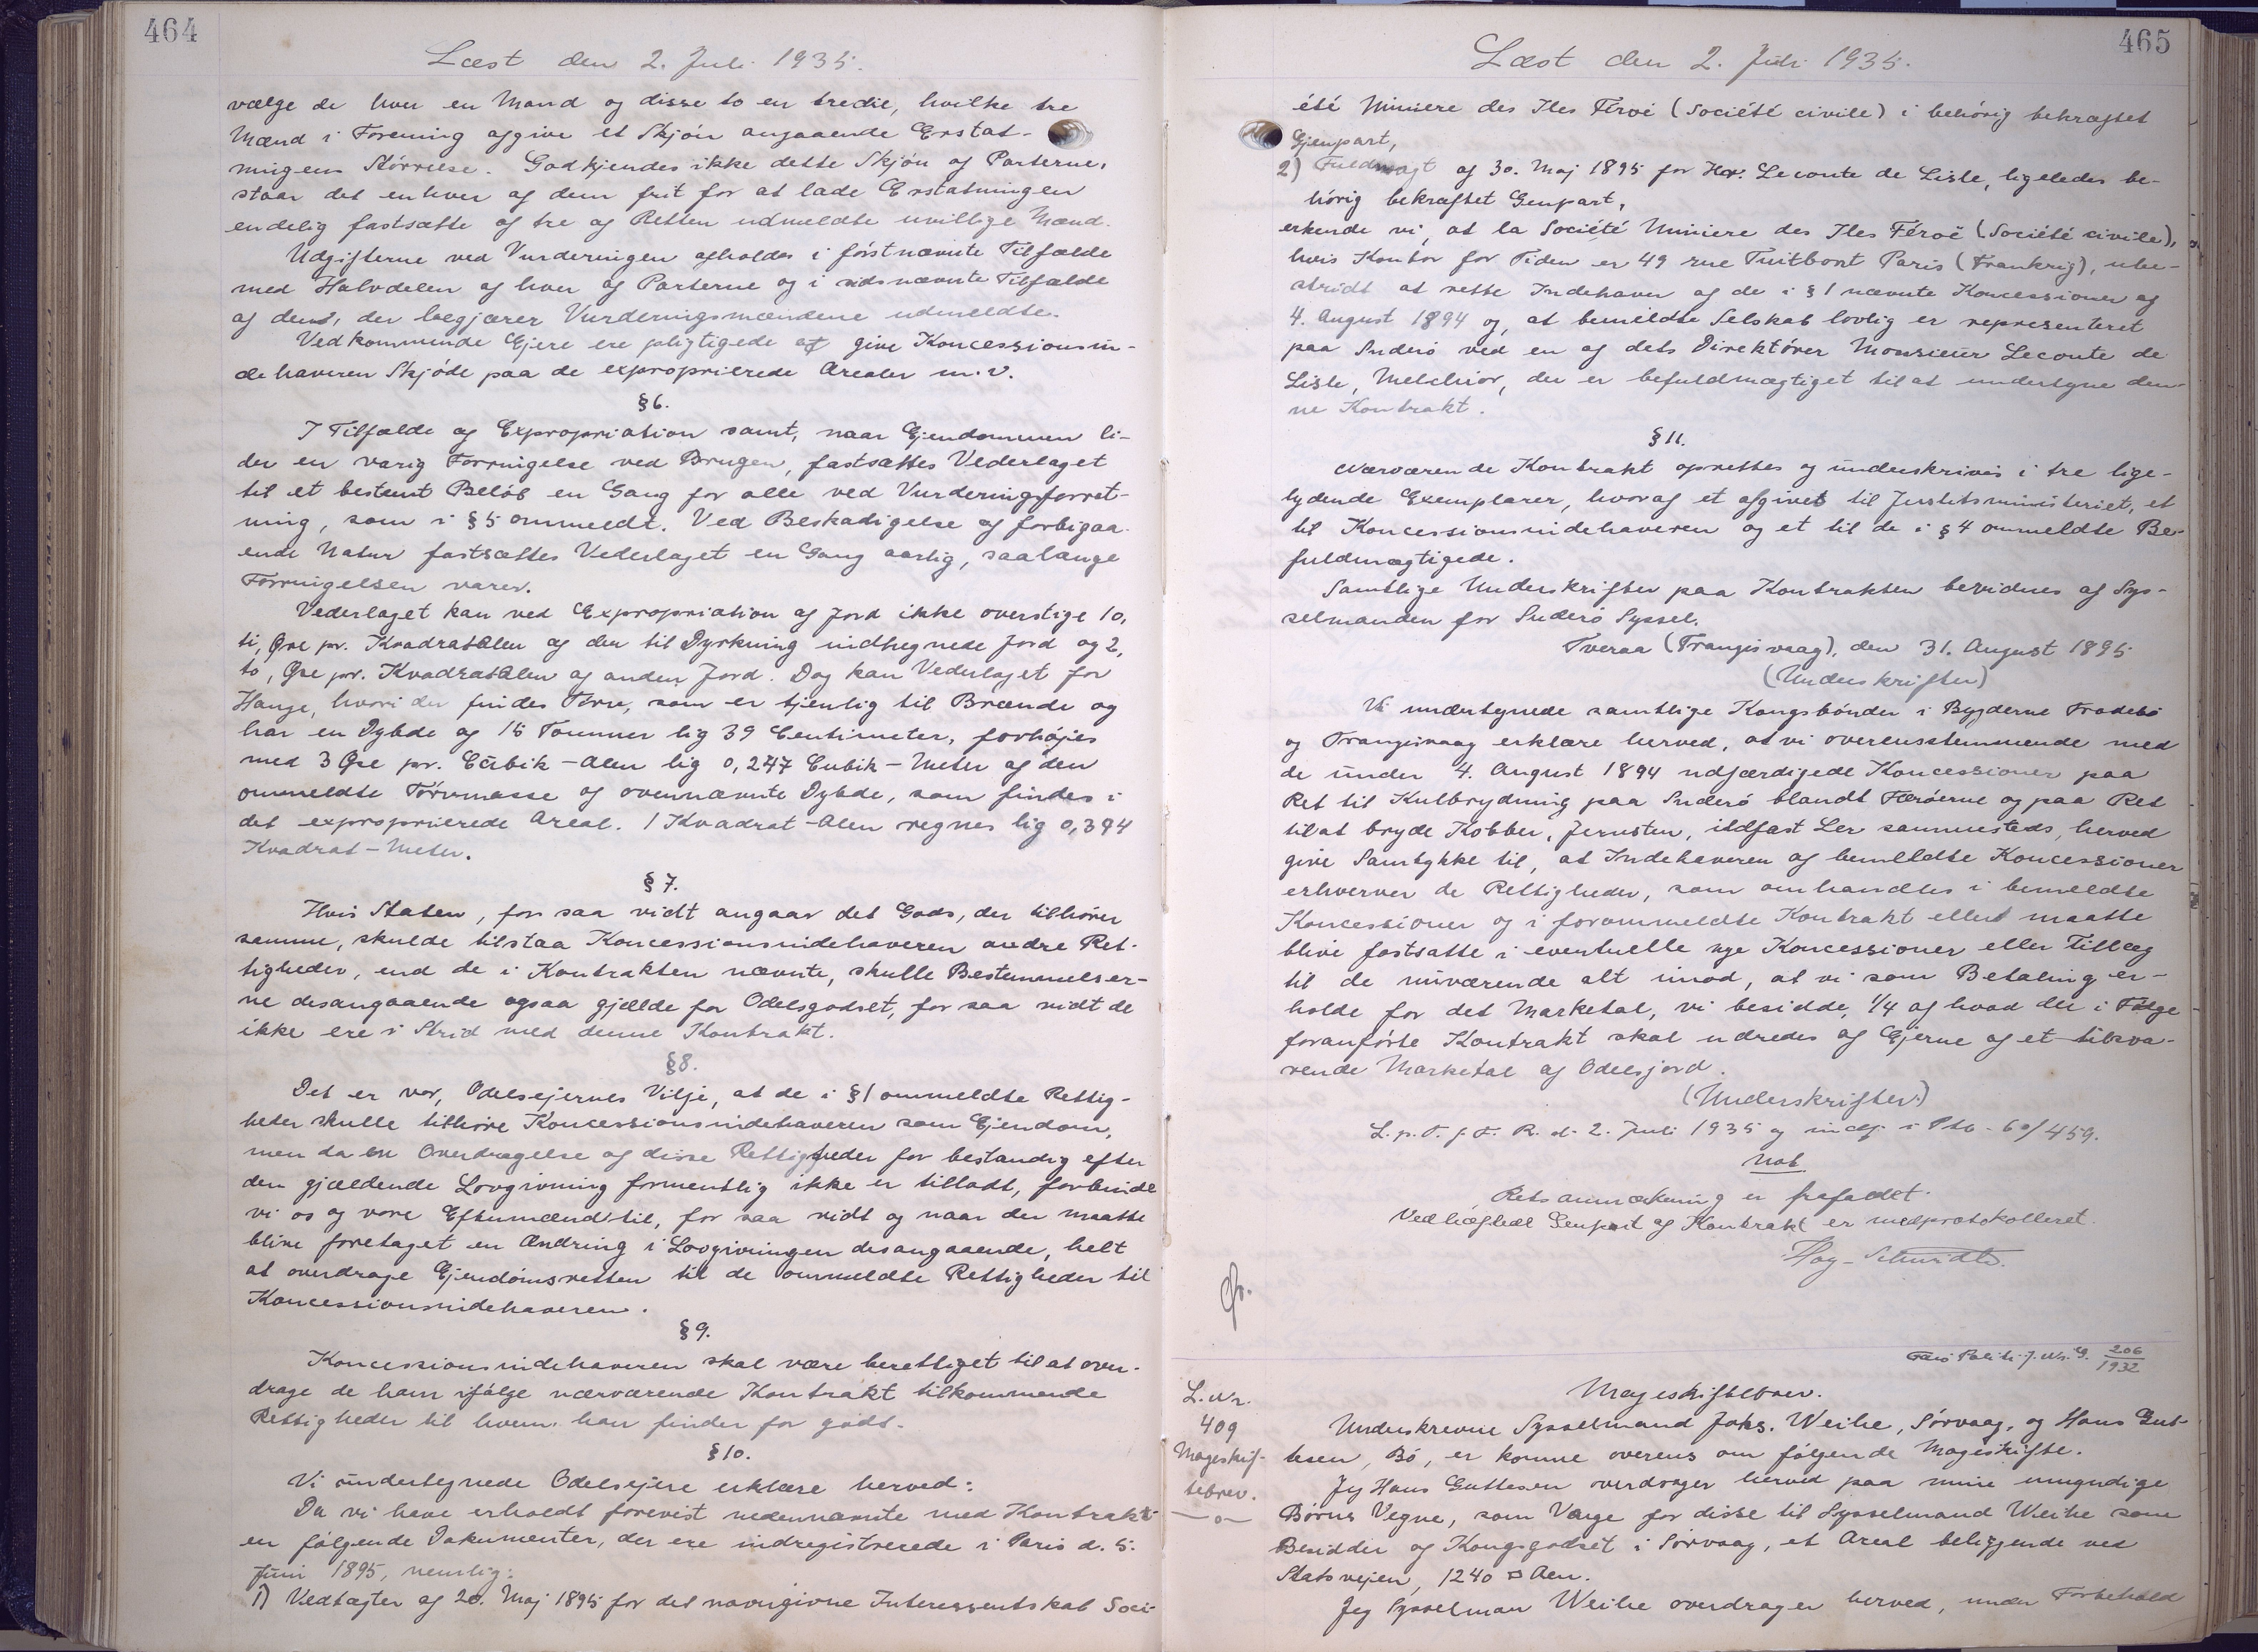 464
Læst den 2. Juli 1935.
vælge de hver en Mand og disse to en tredie, hvilke tre
Mænd i Forening afgive et Skjön angaaende Erstat-
ningens Störrelse. Godkjendes ikke dette Skjön af Parterne,
staar det enhver af dem frit for at lade Erstatningen
endelig fastsætte af tre af Retten udmeldte uvillige Mænd.
Udgifterne ved Vurderingen afholdes i förstnævnte Tilfælde
med Halvdelen af hver af Parterne og i sidsnævnte Tilfælde
af den, der begjærer Vurderingsmændene udmeldte.
Vedkommende Ejere ere pligtigede at give Koncessionsin-
dehaveren Skjöde paa de exproprierede Arealer m.v.
§6.
I Tilfælde af Expropriation samt, naar Ejendommen li-
der en varig Forringelse ved Brugen, fastsættes Vederlaget
til et bestemt Beløb en Gang for alle ved Vurderingsforret-
ning, som i §5 ommeldt. Ved Beskadigelse af forbigaa-
ende Natur fastsættes Vederlaget en Gang aarlig, saalænge
Forringelsen varer.
Vederlaget kan ved Expropriation af Jord ikke overstige 10,
ti, Øre pr. KvadratAlen af den til Dyrkning indhegnede Jord og 2,
to, Øre pr. KvadratAlen af anden Jord. Dog kan Vederlaget for
Hauge, hvori der findes Törv, som er tjenlig til Brænde og
har en Dybde af 15 Tommer lig 39 Centimeter, forhöjes
med 3 Øre pr. Cubik-Alen lig 0,247 Cubik-Meter af den
ommeldte Törvmasse af ovennævnte Dybde, som findes i
det exproprierede Areal. 1 Kvadrat-Alen regnes lig 0,394
Kvadrat-Meter.
§7.
Hvis Staten, for saa vidt angaar det Gods, der tilhörer
samme, skulde tilstaa Koncessionsindehaveren andre Ret-
tigheder, end de i Kontrakten nævnte, skulle Bestemmelser-
ne desangaaende ogsaa gjælde for Odelsgodset, for saa vidt de
ikke ere i Strid med denne Kontrakt.
§8.
Det er vor, Odelsejernes Vilje, at de i §1 ommeldte Rettig-
heder skulle tilhöre Koncessionsindehaveren som Ejendom,
men da en Overdragelse af disse Rettigheder for bestandig efter
den gjældende Lovgivning formentlig ikke er tilladt, forbinde
vi os og vore Eftermænd til, for saa vidt og naar der maatte
blive foretaget en Ændring i Lovgivningen desangaaende, helt
at overdrage Ejendomsretten til de ommeldte Rettigheder til
Koncessionsindehaveren.
§9.
Koncessionsindehaveren skal være berettiget til at over-
drage de ham ifølge nærværende Kontrakt tilkommende
Rettigheder til hvem han finder for godt.
§10.
Vi undertegnede Odelsejere erklære herved:
Da vi have erholdt forevist nedennævnte med Kontrakt-
en følgende Dokumenter, der ere indregistrerede i Paris d. 5.
Juni 1895, nemlig:
1) Vedtægter af 20. Maj 1895 for det navngivne Interessentskab Soci-
465
Læst den 2. Juli 1935.
été Miniere des Iles Féroë (Société civile) i behörig bekræftet
Gjenpart,
2) Fuldmagt af 30. Maj 1895 for Hr. Leconte de Lisle, ligeledes be-
hörig bekræftet Genpart,
erkende vi, at la Société Miniere des Iles Féroë (Société civile),
hvis Kontor for Tiden er 49 rue Tuitbort Paris (Frankrig), ube-
stridt at rette Indehaver af de i §1 nævnte Koncessioner af
4. August 1894 og, at bemeldte Selskab lovlig er representeret
paa Suderö ved en af dets Direktörer Monsieur Leconte de
Lisle, Melchior, der er befuldmægtiget til at undertegne den-
ne Kontrakt.
§11.
Nærværende Kontrakt oprettes og underskrives i tre lige-
lydende Exemplarer, hvoraf et afgives til Justitsministeriet, et
til Koncessionsindehaveren og et til de i §4 ommeldte Be-
fuldmægtigede.
Samtlige Underskrifter paa Kontrakten bevidnes af Sys-
selmanden for Suderö Syssel.
Tveraa (Trangisvaag), den 31. August 1895
(Underskrifter)
Vi undertegnede samtlige Kongsbönder i Bygderne Frodebö
og Trangisvaag erklære herved, at vi overensstemmende med
de under 4. August 1894 udfærdigede Koncessioner paa
Ret til Kulbrydning paa Suderö blandt Færöerne og paa Ret
til at bryde Kobber, Jernsten, ildfast Ler sammesteds, herved
give Samtykke til, at Indehaveren af bemeldte Koncessioner
erhverver de Rettigheder, som omhandles i bemeldte
Koncessioner og i forommeldte Kontrakt eller maatte
blive fastsatte i eventuelle nye Koncessioner eller Tillæg
til de nuværende alt imod, at vi som Betaling er-
holde for det Marketal, vi besidde, 1/4 af hvad der i Følge
foranförte Kontrakt skal udredes af Ejerne af et tilsva-
rende Marketal af Odelsjord.
(Underskrifter)
L.p.T.f.F.R. d. 2. Juli 1935 og indf. i Ptb. 60/459.
Not
Retsanmærkning er frafaldet.
Vedhæftet Genpart af Kontrakt er medprotokolleret.
Høg-Schmidt.
Færö Politi J. Nr. 206/1932
L. Nr.
409
Mageskif-
tebrev.
Mageskiftebrev.
Underskrevne Sysselmand Johs. Weihe, Sörvaag, og Hans Gut-
tesen, Bö, er komne overens om følgende Mageskifte.
Jeg Hans Guttesen overdrager herved paa mine umyndige
Børns Vegne, som Værge for disse til Sysselmand Weihe som
Besidder af Kongsgodset i Sörvaag, et Areal beliggende ved
Statsvejen, 1240 □ Alen.
Jeg Sysselman Weihe overdrager herved, under Forbehold